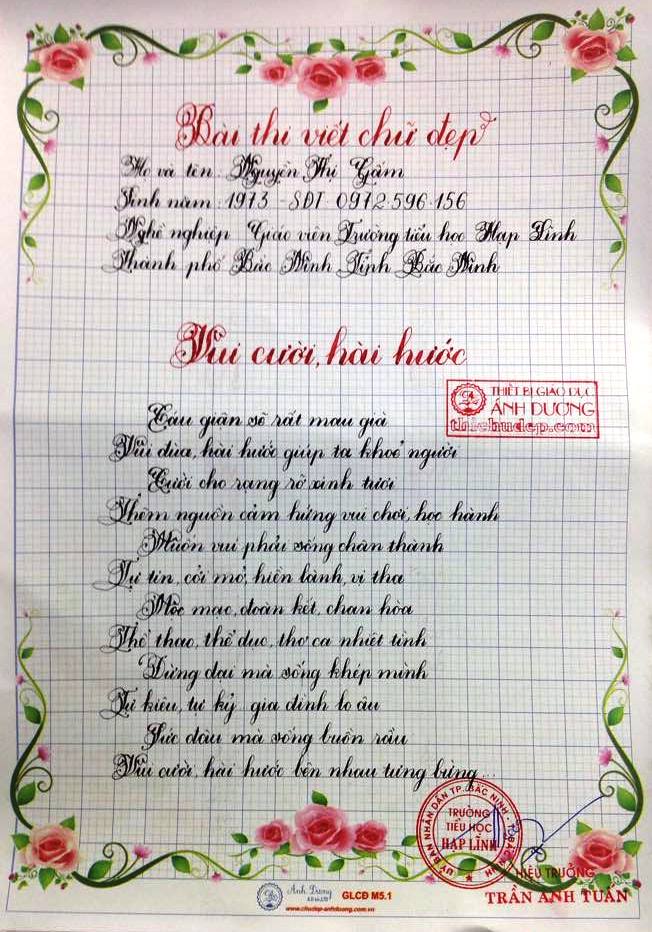 Bài thi viết chữ đẹp
Họ và tên: Nguyễn Thị Gấm
Sinh năm: 1973 - SĐT: 0972.596.156
Nghề nghiệp: Giáo viên Trường tiểu học Hạp Lĩnh
Thành phố Bắc Ninh Tỉnh Bắc Ninh
Vui cười, hài hước
THIẾT BỊ GIÁO DỤC
ÁNH DƯƠNG
thichudep.com
Cáu giận sẽ rất mau già
Vui đùa, hài hước giúp ta khoẻ người
Cười cho rạng rỡ xinh tươi
Thêm nguồn cảm hứng vui chơi, học hành
Muốn vui phải sống chân thành
Tự tin, cởi mở, hiền lành, vị tha
Mộc mạc, đoàn kết, chan hòa
Thể thao, thể dục, thơ ca nhiệt tình
Đừng dại mà sống khép mình
Tự kiêu, tự kỷ gia đình lo âu
Tức đâu mà sống buồn rầu
Vui cười, hài hước bên nhau tưng bừng...
ỦY BAN NHÂN DÂN TP. BẮC NINH
TRƯỜNG
TIỂU HỌC
HẠP LĨNH
HIỆU TRƯỞNG
TRẦN ANH TUẤN
Ánh Dương
GLCĐ M5.1
www.chudep-anhduong.com.vn